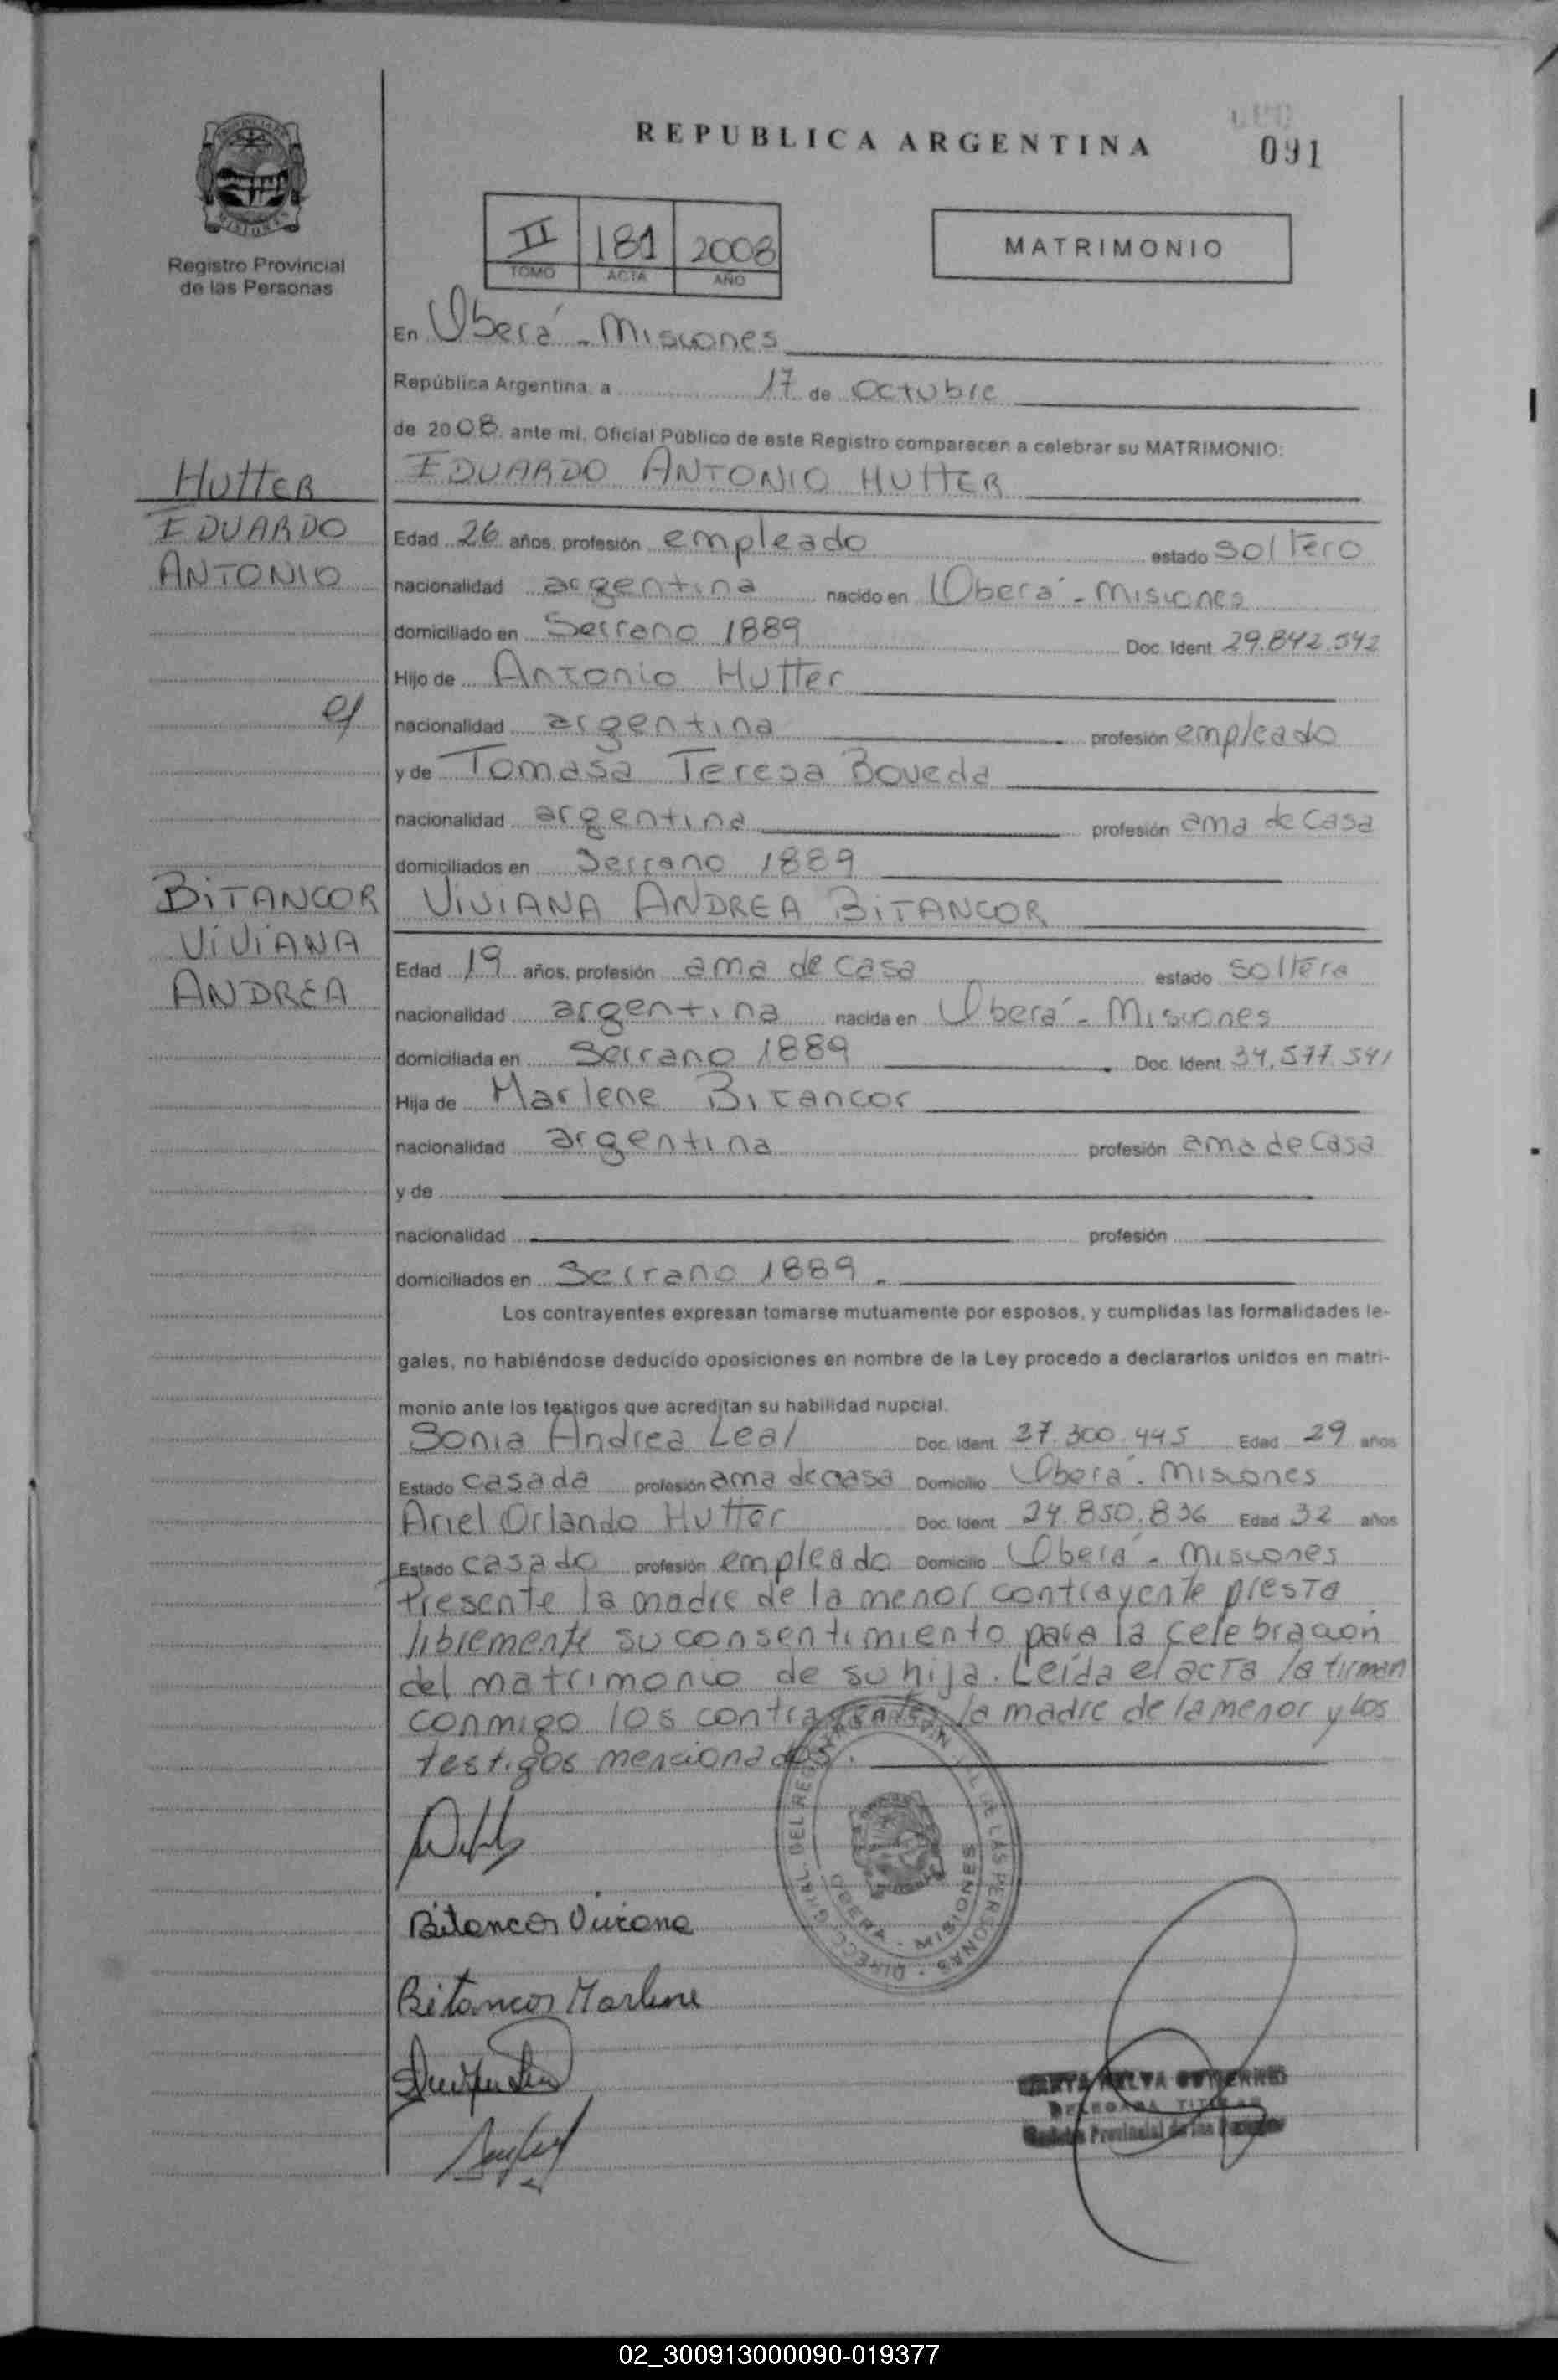 REPUBLICA ARGENTINA
091
Registro Provincial
de las Personas
II 181 2008
TOMO ACTA AÑO
MATRIMONIO
En Oberá - Misiones
República Argentina, a 17 de octubre
de 2008 ante mi, Oficial Público de este Registro comparecen a celebrar su MATRIMONIO:
HUTTER
EDUARDO
ANTONIO
EDUARDO ANTONIO HUTTER
Edad 26 años, profesión empleado estado soltero
nacionalidad argentina nacido en Oberá - Misiones
domiciliado en Serrano 1889 Doc. Ident. 29.842.542
Hijo de Antonio Hutter
nacionalidad argentina profesión empleado
y de Tomasa Teresa Boveda
nacionalidad argentina profesión ama de casa
domiciliados en Serrano 1889
BITANCOR
VIVIANA
ANDREA
VIVIANA ANDREA BITANCOR
Edad 19 años, profesión ama de casa estado soltera
nacionalidad argentina nacida en Oberá - Misiones
domiciliada en Serrano 1889 Doc. Ident. 34.577.541
Hija de Marlene Bitancor
nacionalidad argentina profesión ama de casa
y de
nacionalidad profesión
domiciliados en Serrano 1889.
Los contrayentes expresan tomarse mutuamente por esposos, y cumplidas las formalidades le-
gales, no habiéndose deducido oposiciones en nombre de la Ley procedo a declararlos unidos en matri-
monio ante los testigos que acreditan su habilidad nupcial.
Sonia Andrea Leal Doc. Ident. 27.300.445 Edad 29 años
Estado casada profesión ama de casa Domicilio Oberá - Misiones
Ariel Orlando Hutter Doc. Ident. 24.850.836 Edad 32 años
Estado casado profesión empleado Domicilio Oberá - Misiones
Presente la madre de la menor contrayente presta
libremente su consentimiento para la celebración
del matrimonio de su hija. Leída el acta la firman
conmigo los contrayentes, la madre de la menor y los
testigos mencionados.
Bitancor Viviana
Bitancor Marlene
OBERA - MISIONES
DELEGADA TITULAR
Registro Provincial de las Personas
02_300913000090-019377